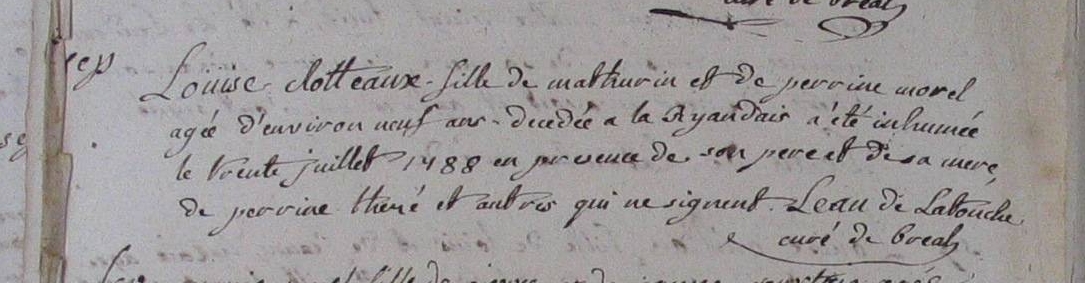 curé de breal
sep
Louise clotteaux fille de mathurin et de perrine morel
agée d'environ neuf ans decedée a la Ryandais a été inhumée
le trente juillet 1788 en presence de son pere et de sa mere,
de perrine theré et autres qui ne signent. Leau de Latouche
curé de breal
fille de